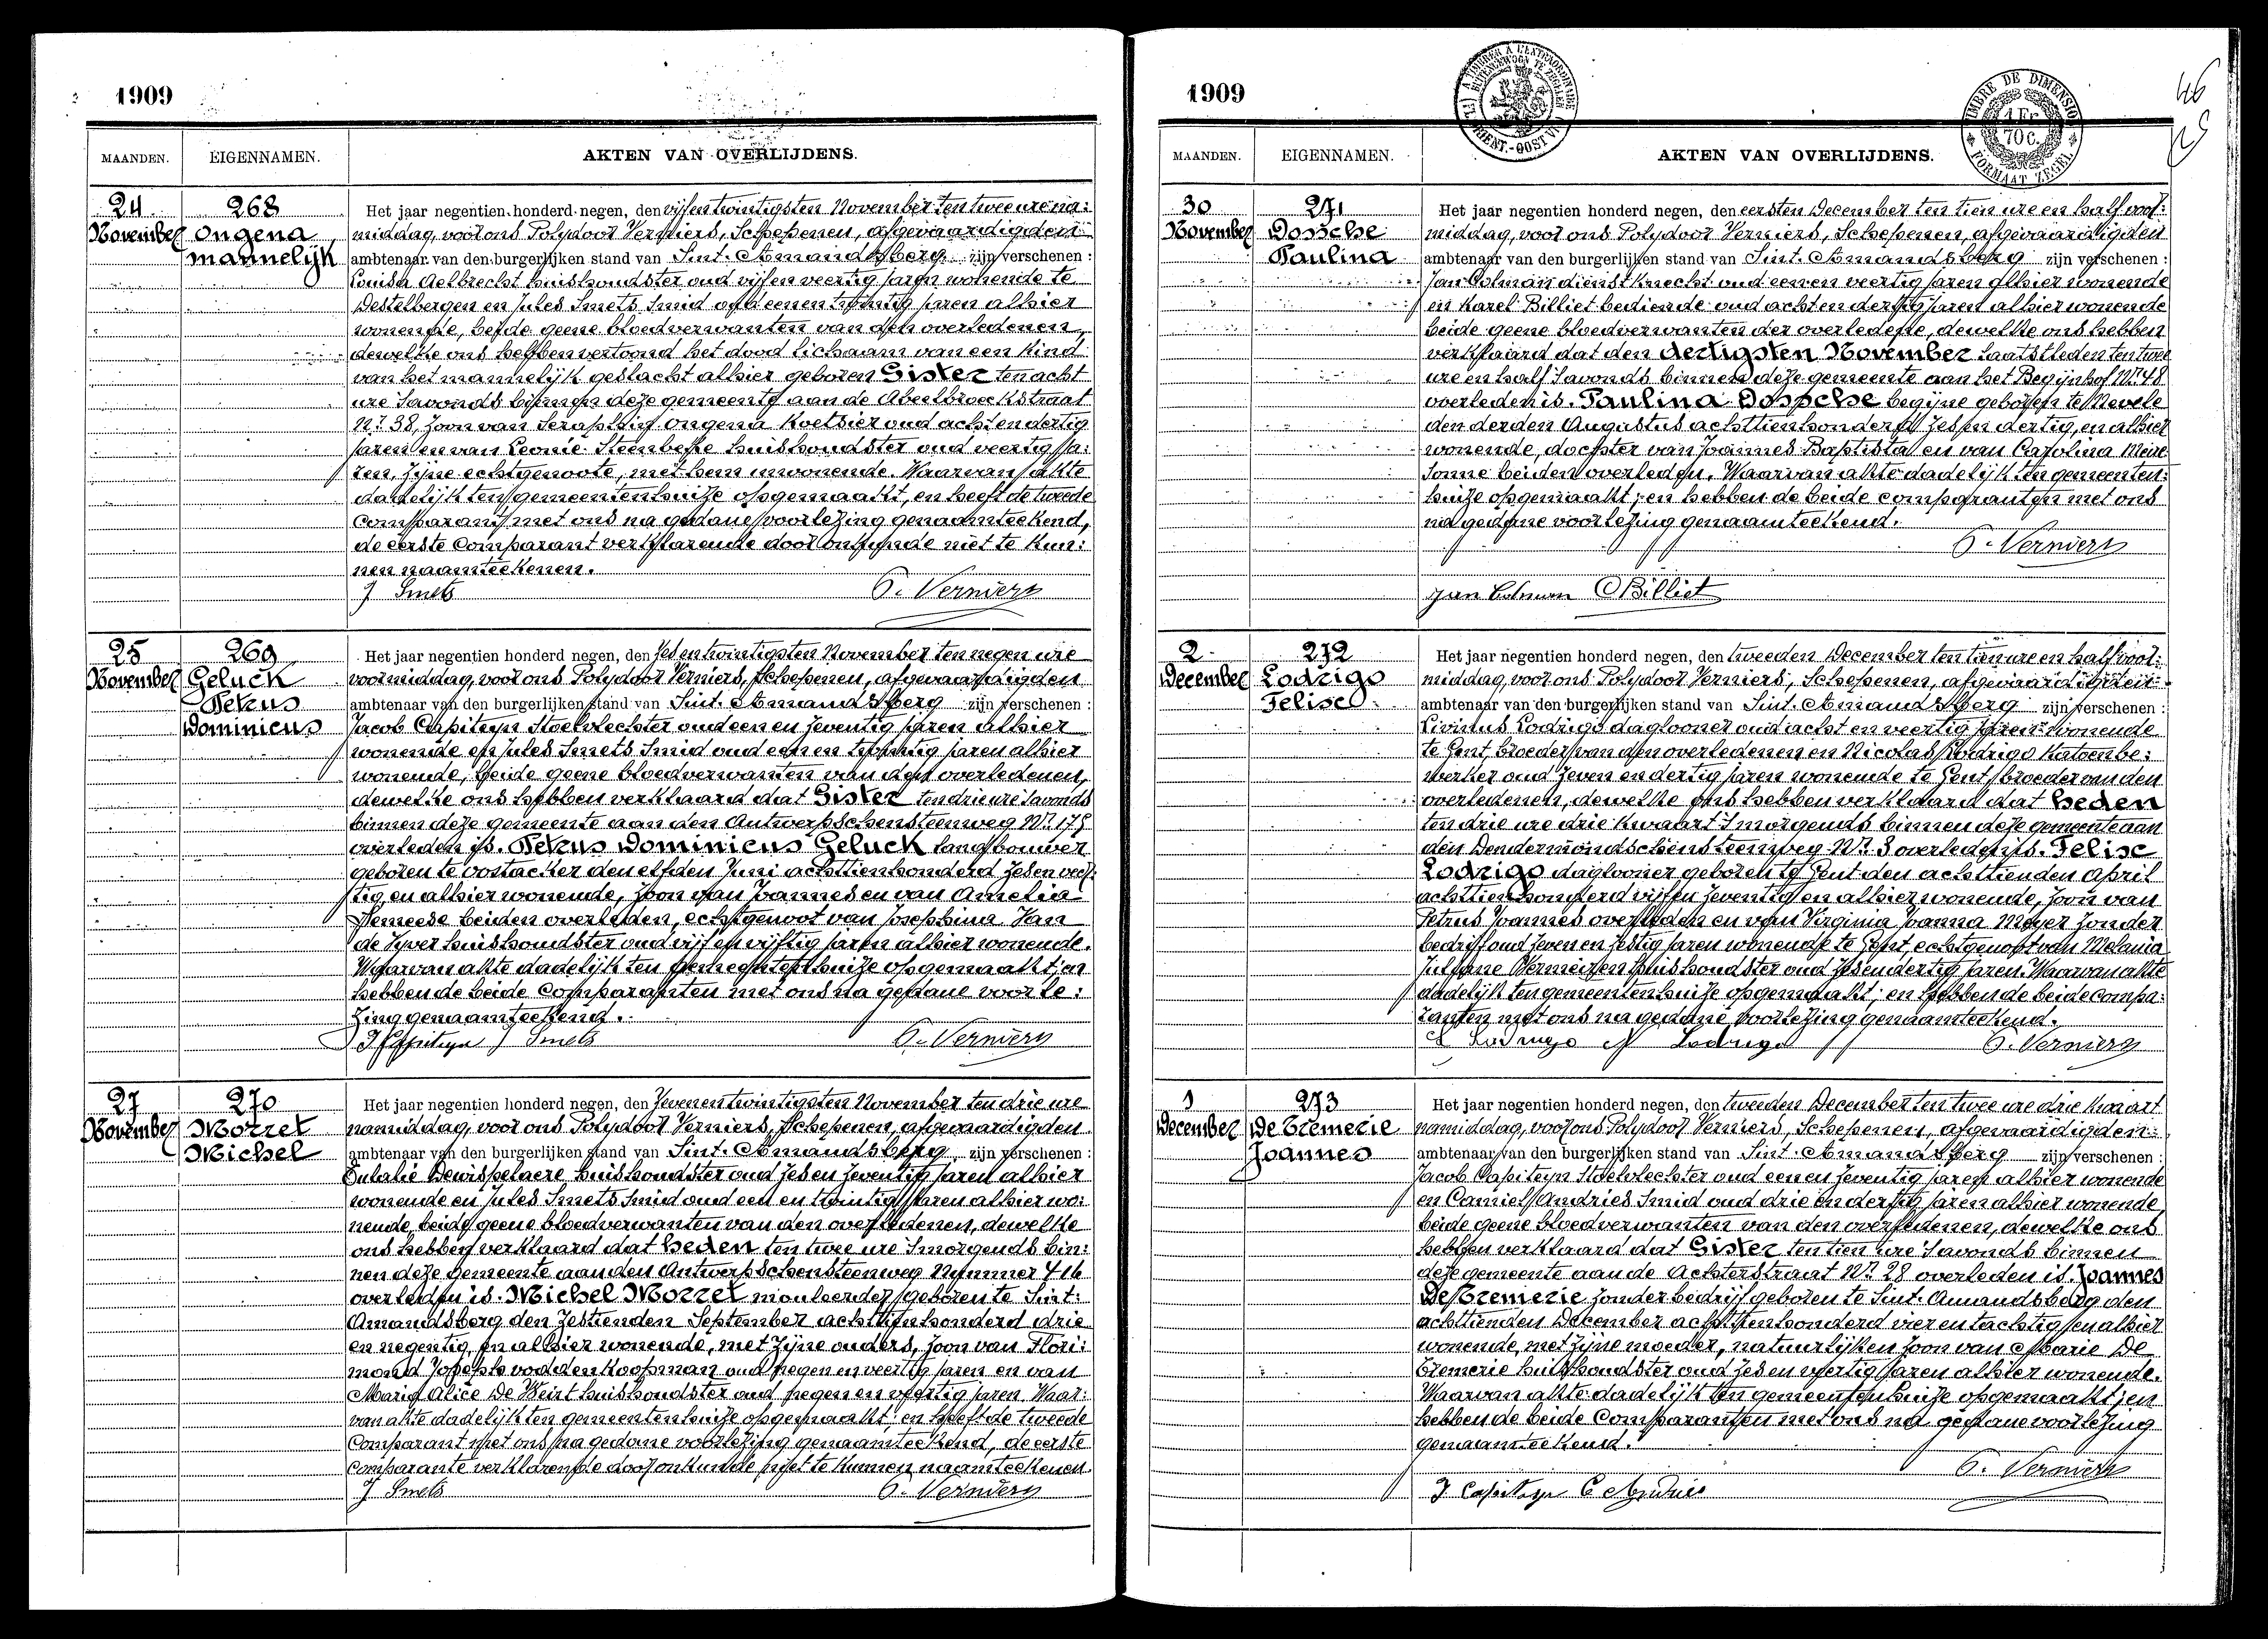 1909
MAANDEN.
EIGENNAMEN.
AKTEN VAN OVERLIJDENS.
24
November
268
Ongena
mannelijk
Het jaar negentien honderd negen, den vijfentwintigsten November ten twee ure na:
middag, voor ons Polydoor Verniers, Schepenen, afgevaardigden
ambtenaar van den burgerlijken stand van Sint. Amandsberg zijn verschenen :
Louisa Aelbrecht huishoudster oud vijf en veertig jaren wonende te
Destelbergen en Jules Smets Smid oud een en twintig jaren alhier
wonende, beide geene bloedverwanten van den overledenen,
dewelke ons hebben vertoond het dood lichaam van een kind
van het mannelijk geslacht alhier geboren Gister ten acht
ure 's avonds binnen deze gemeente aan de Abeelbroeckstraat
Nr. 38, zoon van Seraphin Ongena koetsier oud acht en dertig
jaren en van Leonie Steenbeke huishoudster oud veertig ja:
ren, zijne echtgenoote, met hem inwonende. Waarvan akte
dadelijk ten gemeentenhuize opgemaakt, en heeft de tweede
Comparant met ons na gedane voorlezing genaamteekend,
de eerste Comparant verklarende door onkunde niet te kun:
nen naamteekenen.
J Smets P. Verniers
25
November
269
Geluck
Petrus
Dominicus
Het jaar negentien honderd negen, den zes en twintigsten November ten negen ure
voormiddag, voor ons Polydoor Verniers, Schepenen, afgevaardigden
ambtenaar van den burgerlijken stand van Sint. Amandsberg zijn verschenen :
Jacob Capiteyn Stoelvlechter oud een en zeventig jaren alhier
wonende en Jules Smets Smid oud een en twintig jaren alhier
wonende, beide geene bloedverwanten van den overledenen,
dewelke ons hebben verklaard dat Gister ten drie ure 's avonds
binnen deze gemeente aan den Antwerpschensteenweg Nr. 175
overleden is. Petrus Dominicus Geluck landbouwer
geboren te Oostacker den elfden Juni achttienhonderd zes en veer:
tig, en alhier wonende, zoon van Joannes en van Amelia
Vemeese beiden overleden, echtgenoot van Josephina Van
de Vyver huishoudster oud vijf en vijftig jaren alhier wonende.
Waarvan akte dadelijk ten gemeentenhuize opgemaakt; en
hebben de beide Comparanten met ons na gedane voorle:
zing genaamteekend.
J Capiteyn J Smets P. Verniers
27
November
270
Morret
Michel
Het jaar negentien honderd negen, den zevenentwintigsten November ten drie ure
namiddag, voor ons Polydoor Verniers, Schepenen, afgevaardigden
ambtenaar van den burgerlijken stand van Sint. Amandsberg, zijn verschenen :
Eulalie Dewispelaere huishoudster oud zes en zeventig jaren alhier
wonende en Jules Smets Smid oud een en twintig jaren alhier wo:
nende, beide geene bloedverwanten van den overledenen, dewelke
ons hebben verklaard dat heden ten twee ure 's morgends bin:
nen deze gemeente aan den Antwerpschensteenweg Nummer 416
overleden is. Michel Morret mouleerder geboren te Sint:
Amandsberg den zestienden September achttienhonderd drie
en negentig, en alhier wonende, met zijne ouders, zoon van Flori:
mond Joseph voddenkoopman oud negen en veertig jaren en van
Marie Alice De Weirt huishoudster oud negen en veertig jaren. Waar:
van akte dadelijk ten gemeentenhuize opgemaakt; en heeft de tweede
Comparant met ons na gedane voorlezing genaamteekend, de eerste
Comparante verklarende door onkunde niet te kunnen naamteekenen.
J Smets P. Verniers
1909
46
MAANDEN.
EIGENNAMEN.
AKTEN VAN OVERLIJDENS.
TIMBRE DE DIMENSION
1 Fr. 70 c.
FORMAAT ZEGEL
30
November
271
Dossche
Paulina
Het jaar negentien honderd negen, den eersten December ten tien ure en half voor:
middag, voor ons Polydoor Verniers, Schepenen, afgevaardigden
ambtenaar van den burgerlijken stand van Sint. Amandsberg zijn verschenen :
Jan Colman dienstknecht oud een en veertig jaren alhier wonende
en Karel Billiet bediende oud acht en dertig jaren alhier wonende
beide geene bloedverwanten der overledene, dewelke ons hebben
verklaard dat den dertigsten November laatstleden ten twee
ure en half 's avonds binnen deze gemeente aan het Begijnhof Nr. 48
overleden is. Paulina Dossche begijne geboren te Nevele
den derden Augustus achttienhonderd zes en dertig, en alhier
wonende, dochter van Joannes Baptista en van Carolina Meire
Sonne beiden overleden. Waarvan akte dadelijk ten gemeenten:
huize opgemaakt; en hebben de beide comparanten met ons
na gedane voorlezing genaamteekend.
P. Verniers
Jan Colman C Billiet
2
December
272
Lodrigo
Felise
Het jaar negentien honderd negen, den tweeden December ten tien ure en half voor:
middag, voor ons Polydoor Verniers, Schepenen, afgevaardigden
ambtenaar van den burgerlijken stand van Sint. Amandsberg zijn verschenen :
Livinus Lodrigo daglooner oud acht en veertig jaren wonende
te Gent, broeder van den overledenen en Nicolas Rodrigo Katoenbe:
werker oud zeven en dertig jaren wonende te Gent, broeder van den
overledenen, dewelke ons hebben verklaard dat heden
ten drie ure drie kwaart 's morgends binnen deze gemeente aan
den Dendermondschensteenweg Nr. 3 overleden is. Felise
Lodrigo daglooner geboren te Gent den achttienden April
achttienhonderd vijf en zeventig en alhier wonende, zoon van
Petrus Joannes overleden en van Virginia Joanna Meyer zonder
bedrijf oud zeven en zestig jaren wonende te Gent, echtgenoot van Melania
Juliane Vermeiren huishoudster oud zes en dertig jaren. Waarvan akte
dadelijk ten gemeentenhuize opgemaakt; en hebben de beide compa:
ranten met ons na gedane voorlezing genaamteekend.
L Lodrigo N Lodrigo P. Verniers
1
December
273
De Bremerie
Joannes
Het jaar negentien honderd negen, den tweeden December ten twee ure drie kwaart
namiddag, voor ons Polydoor Verniers, Schepenen, afgevaardigden
ambtenaar van den burgerlijken stand van Sint. Amandsberg zijn verschenen :
Jacob Capiteyn Stoelvlechter oud een en zeventig jaren alhier wonende
en Camiel Andries Smid oud drie en dertig jaren alhier wonende,
beide geene bloedverwanten van den overledenen, dewelke ons
hebben verklaard dat Gister ten tien ure 's avonds binnen
deze gemeente aan de Achterstraat Nr. 28 overleden is. Joannes
De Bremerie zonder bedrijf geboren te Sint. Amandsberg den
achttienden December achttienhonderd vier en tachtig, en alhier
wonende, met zijne moeder, natuurlijken zoon van Marie De
Bremerie huishoudster oud zes en veertig jaren alhier wonende.
Waarvan akte dadelijk ten gemeentenhuize opgemaakt; en
hebben de beide Comparanten met ons na gedane voorlezing
genaamteekend.
P. Verniers
J Capiteyn C Andries